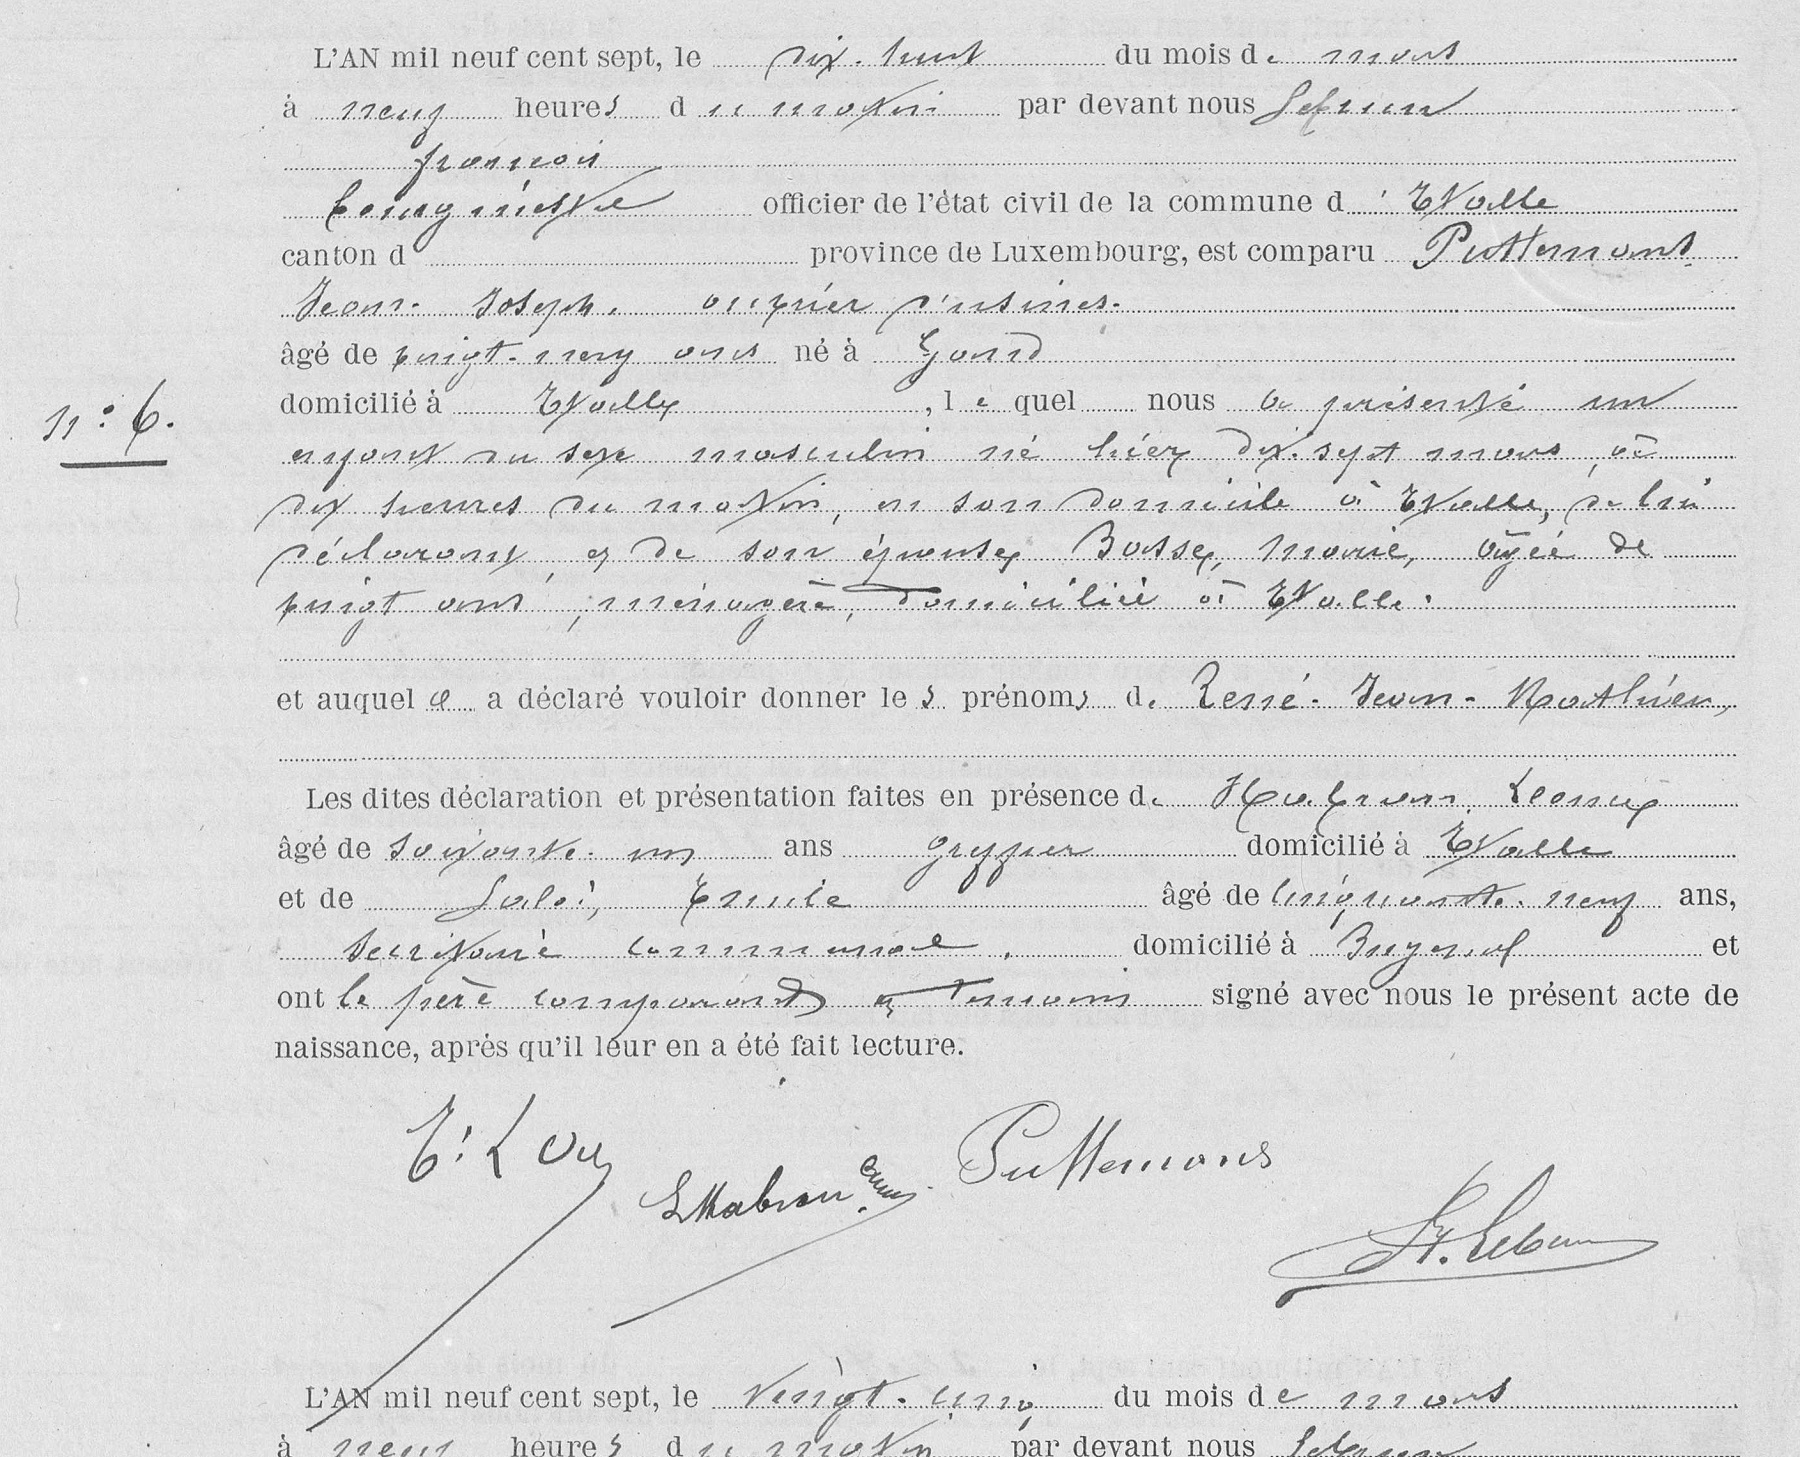 L'AN mil neuf cent sept, le dix-huit du mois de mars
à neuf heures du matin par devant nous Lebrun
françois
bourgmestre officier de l'état civil de la commune d' Etalle
canton d province de Luxembourg, est comparu Puttemans
Jean-Joseph, ouvrier d'usines.
âgé de vingt-neuf ans né à Gand
domicilié à Etalle, lequel nous a présenté un
enfant du sexe masculin né hier dix-sept mars, à
dix heures du matin, en son domicile à Etalle, de lui
déclarant, et de son épouse, Marie, âgée de
vingt ans, ménagère, domiciliée à Etalle.
et auquel a déclaré vouloir donner les prénoms de René-Jean-Mathieu,
Les dites déclaration et présentation faites en présence de Habran
âgé de soixante-un ans greffier domicilié à Etalle
et de Emile âgé de cinquante-neuf ans,
secrétaire communal. domicilié à Buzenol et
ont le père comparant et témoins signé avec nous le présent acte de
naissance, après qu'il leur en a été fait lecture.
n° 6.
Habran Puttemans
F. Lebrun
L'AN mil neuf cent sept, le vingt-cinq du mois de mars
à neuf heures du matin par devant nous Lebrun